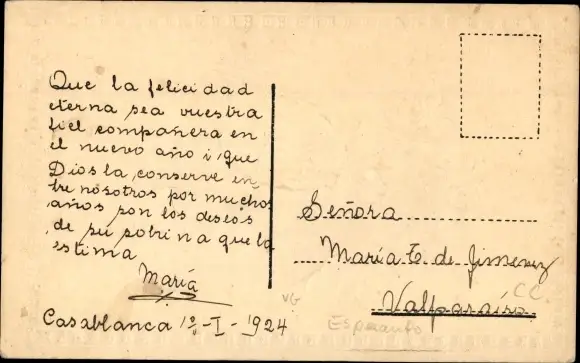 Que la felicidad
eterna sea vuestra
fiel compañera en
el nuevo año i que
Dios la conserve en
tre nosotros por muchos
años son los deseos
de su sobrina que la
estima
María
Casablanca 1º-I-1924
Señora
María E. de Jimenez
Valparaíso
VG
CC
Esperanto